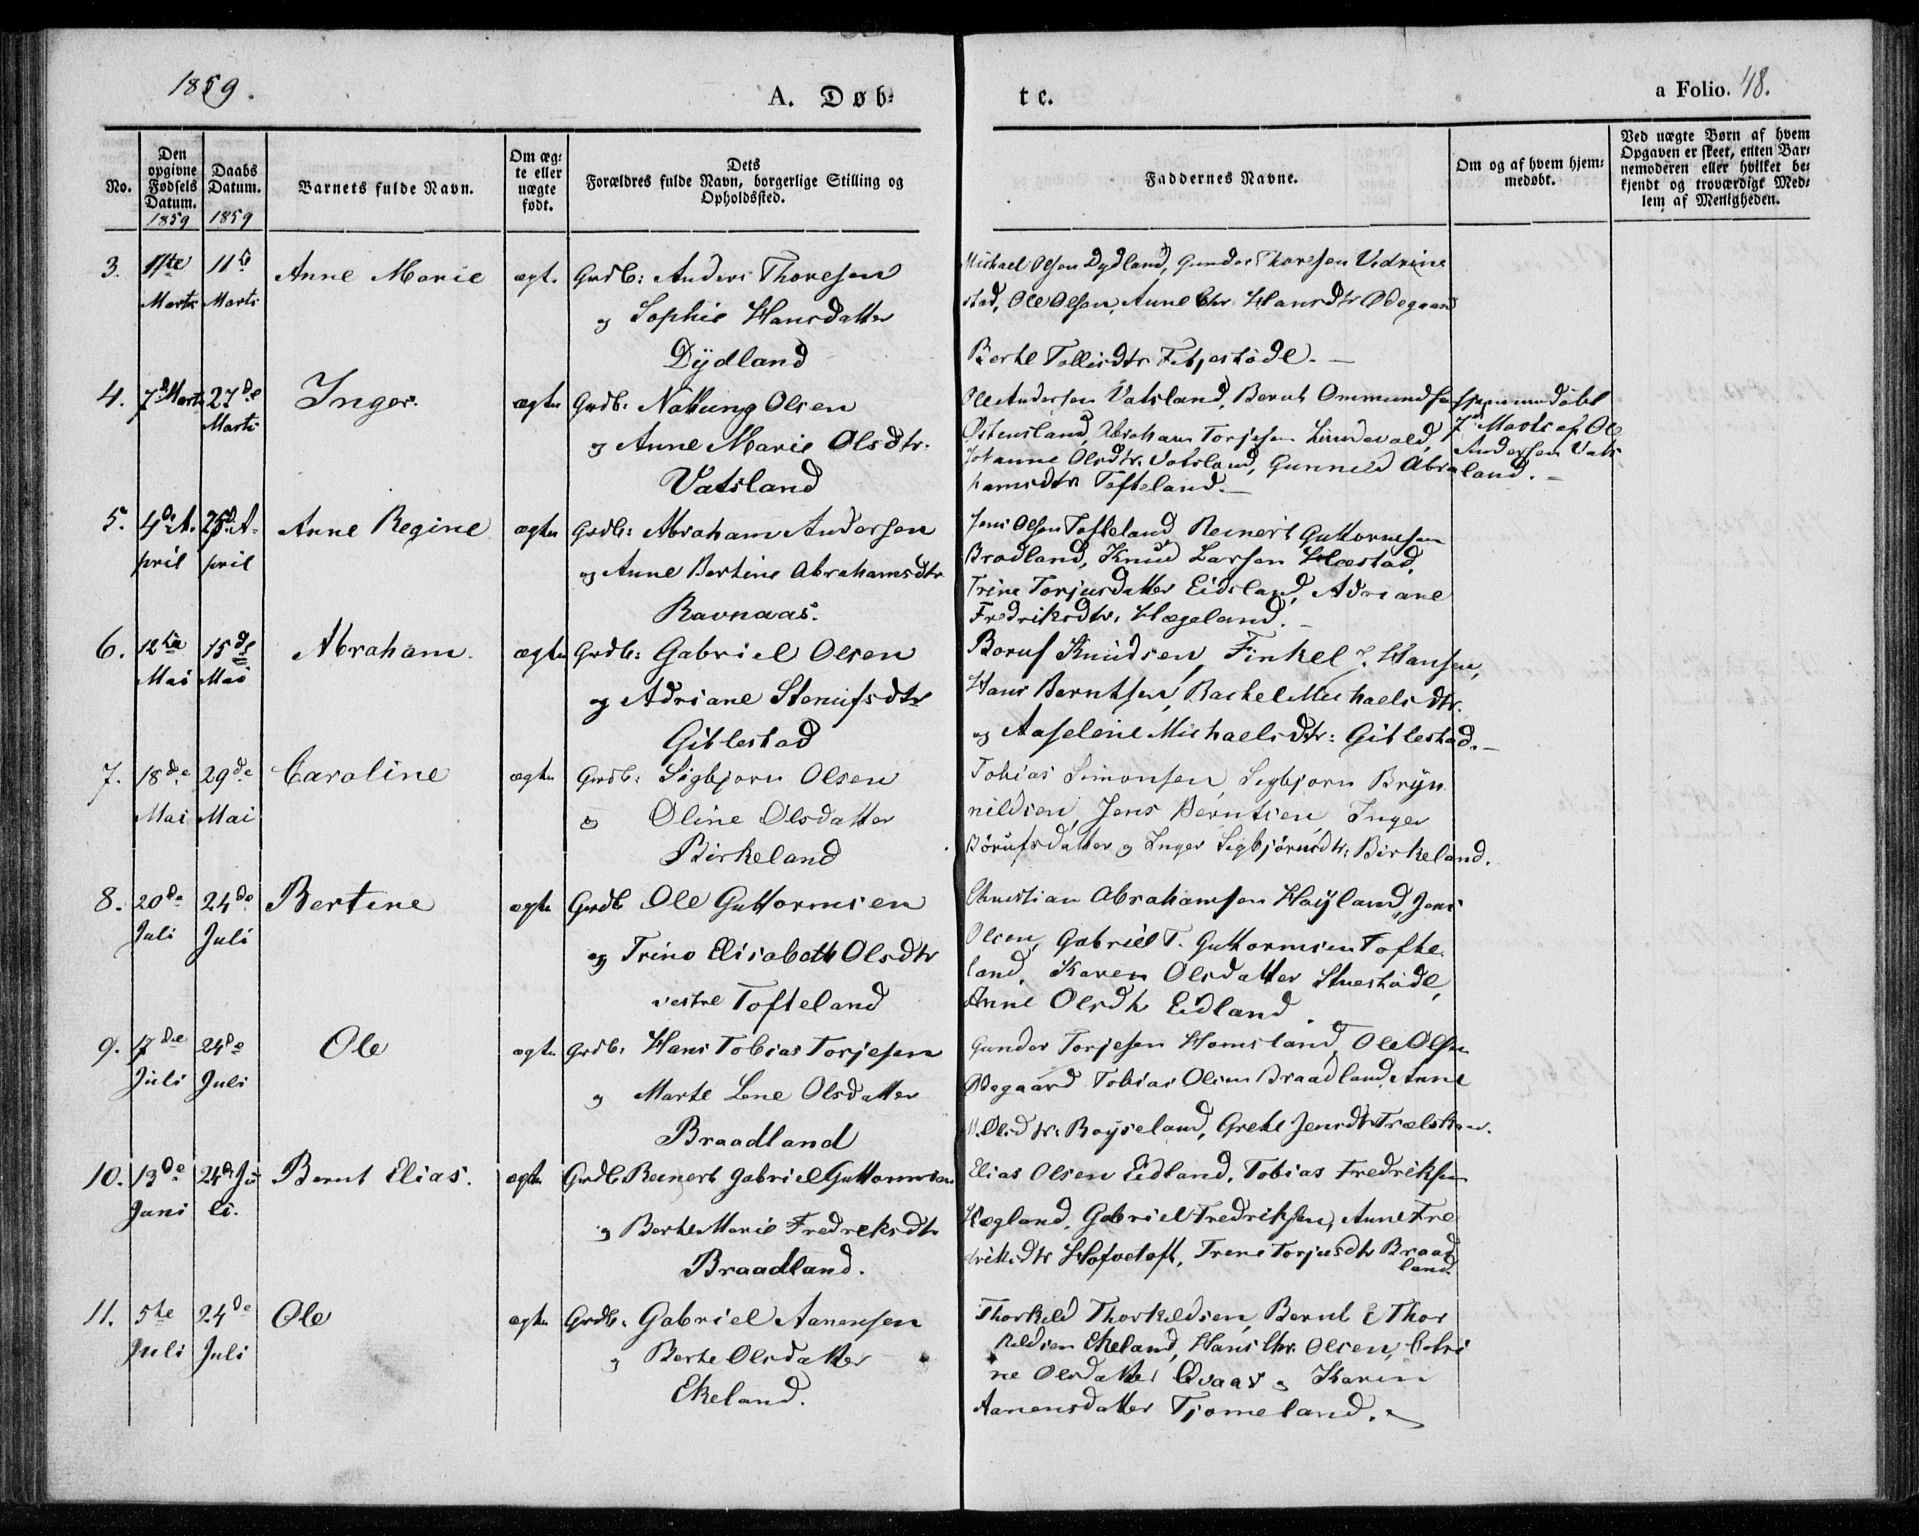 1859.
A. Døb-
te.
a Folio. 48.
No.
Den opgivne Fødsels Datum. 1859
Daabs Datum. 1859
Barnets fulde Navn.
Om æg-te eller uægte født.
Dets
Forældres fulde Navn, borgerlige Stilling og
Opholdssted.
Faddernes Navne.
Om og af hvem hjem-
medøbt.
Ved uægte Børn af hvem
Opgaven er skeet, enten Bar-
nemoderen eller hvilket be-
kjendt og troværdigt Med-
lem af Menigheden.
3. 11te Marts 11te Marts Anne Marie ægte Grdb: Anders Thoresen
og Sophie Hansdatter
Dydland
Michael Olsen Dydland, Gunder Thoresen Vedrine
stad, Ole Olsen, Anne Chr. Hansdtr Ødegaard
Berte Tollisdtr
4. 7de Marts 27de Marts Inger. ægte Grdb: Nottung Olsen
og Anne Marie Olsdtr.
Vatsland
Ole Andersen Vatsland, Bernt Ommundsen
Østensland, Abraham Torjesen Lindevold,
Johanne Olsdtr. Vatsland, Gunnild Abra
hamsdtr Tofteland. -
Hjemmedøbt
7de Marts af Ole
Andersen Vats
land. -
5. 4de April 25de April Anne Regine ægte Grdb: Abraham Andersen
og Anne Bertine Abrahamsdtr
Ravnaas.
Jens Olsen Tofteland, Reinert Guttormsen
Bradland, Knud Larsen Hæstad,
Trine Torjusdatter Eidsland, Adriane
Fredriksdtr. Hægeland. -
6. 12te Mai 15de Mai Abraham. ægte Grdb: Gabriel Olsen
og Adriane Stenufsdtr
Gitlestad
Boruf Knudsen, Finkel J. Hansen,
Hans Berntsen, Rachel Michaelsdtr.
og Aaselene Michaelsdtr: Gitlestad. -
7. 18de Mai 29de Mai Caroline ægte Grdb: Sigbjørn Olsen
og Oline Olsdatter
Birkeland
Tobias Simonsen, Sigbjørn Bryn
nildsen, Jens Berntsen, Inger
Børufsdatter og Inger Sigbjørnsdtr: Birkeland.
8. 20de Juli 24de Juli Bertine ægte Grdb Ole Guttormsen
og Trine Elisabeth Olsdtr
vestre Tofteland
Christian Abrahamsen Høyland, Jens
Olsen, Gabriel T. Guttormsen Tofte
land, Karen Olsdatter Stuestødl,
Anne Olsdtr Eidland.
9. 17de Juli 24de Juli Ole ægte Grdb: Hans Tobias Torjesen
og Marte Lene Olsdatter
Braadland
Gunder Torjesen Homsland, Ole Olsen
Ødegaard Tobias Olsen Braadland, Anne
Olsdtr: Røyseland, Grete Jensdtr
10. 13de Juni 24de Juli. Bernt Elias. ægte Grdb Reinert Gabriel Guttormsen
og Berte Marie Fredreksdtr
Braadland.
Elias Olsen Eidland, Tobias Fredriksen
Hægland, Gabriel Fredriksen, Anne Fre
driksdtr Hofvetoft, Trene Torjusdtr Braad
land.
11. 5te Juli 24de Juli Ole ægte Grdb: Gabriel Aanensen
og Berte Olsdatter
Ekeland.
Thorkeld Thorkeldsen, Bernt E Thor
keldsen Ekeland, Hans Chr. Olsen, Cathri
ne Olsdatter Qvaas og Karen
Aanensdatter Tjomeland.